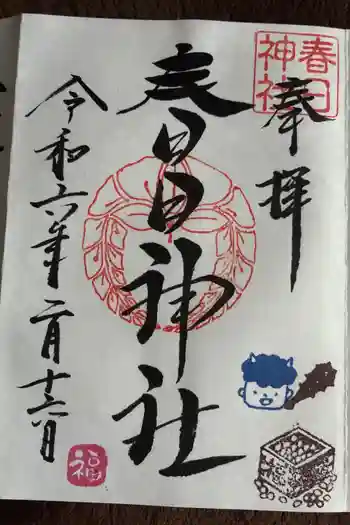 春日
神社
奉拝
春日神社
令和六年二月十六日
福